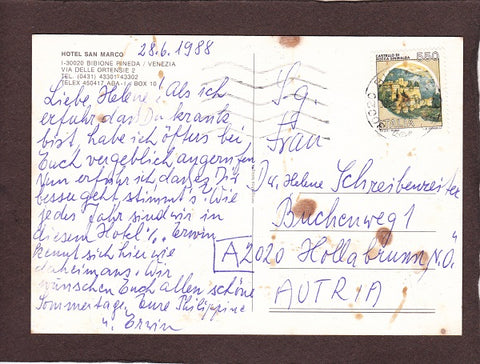 28.6.1988
HOTEL SAN MARCO
I-30020 BIBIONE PINEDA / VENEZIA
VIA DELLE ORTENSIE 2
TEL. (0431) 43301-43302
TELEX 450417 ABA - BOX 10
Liebe Helene! Als ich
erfuhr daß Du krank
bist, habe ich öfters bei
Euch vergeblich angerufen
Nun erfuhr ich daß es Dir
besser geht, stimmt's. Wie
jedes Jahr sind wir in
diesem Hotel. Erwin
kennt sich hier wie
daheim aus. Wir
wünschen Euch allen schöne
Sommertage, Eure Philippine
u. Erwin
CASTELLO DI
ROCCA SINIBALDA
550
ITALIA
30020
Sg.
Frau
Dir. Helene Schreibenreiter
Buchenweg 1
A 2020 Hollabrunn, N.Ö.
AUTRIA